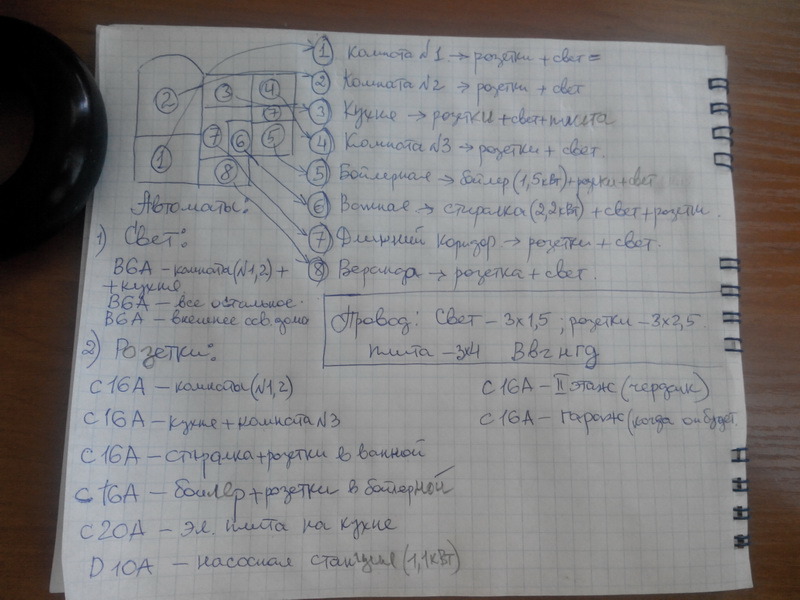 ① Комната №1 → розетки + свет =
② Комната №2 → розетки + свет
③ Кухня → розетки + свет + плита
④ Комната №3 → розетки + свет.
⑤ Бойлерная → бойлер (1,5кВт) + розетки + свет
⑥ Ванная → стиралка (2,2кВт) + свет + розетки.
⑦ Длинный коридор → розетки + свет.
⑧ Веранда → розетка + свет.
2 3 4 7 7 6 5 1 8
Автоматы:
1) Свет:
B6A – комната (№1,2) +
+ кухня
B6A – все остальное.
B6A – внешнее осв. дома
Провод: Свет – 3х1,5 ; розетки – 3х2,5.
плита – 3х4 ВВГнгд
2) Розетки:
C16A – комнаты (№1,2)
C16A – кухня + комната №3
C16A – стиралка + розетки в ванной
C16A – бойлер + розетки в бойлерной
C20A – эл. плита на кухне
D10A – насосная станция (1,1кВт)
C16A – II этаж (чердак)
C16A – гараж (когда он будет.